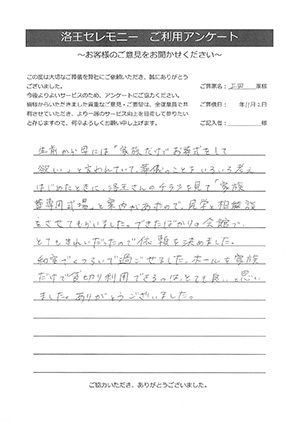 洛王セレモニー　ご利用アンケート
～お客様のご意見をお聞かせください～
この度は大切なご葬儀を弊社にご依頼いただき、誠にありがとう
ございました。
今後よりよいサービスのため、アンケートにご協力ください。
皆様からいただきました貴重なご意見・ご要望は、全従業員で共
有させていただき、より一層のサービス向上を目指して参りたい
と存じますので、何卒よろしくお願い申し上げます。
ご葬家名： 家様
ご葬儀日： 年11月2日
ご記入日： 様
生前から母には「家族だけでお葬式をして
欲しい」と言われていて、葬儀のことをいろいろ考え
はじめたときに、洛王さんのチラシを見て「家族
葬専用式場」と案内があったので、見学と相談
をさせてもらいました。できたばかりの会館で、
とてもきれいだったので依頼を決めました。
和室でくつろいで過ごせましたし、ホールを家族
だけで貸切り利用できるのは、とても良いと思い
ました。ありがとうございました。
ご協力いただき、ありがとうございました。